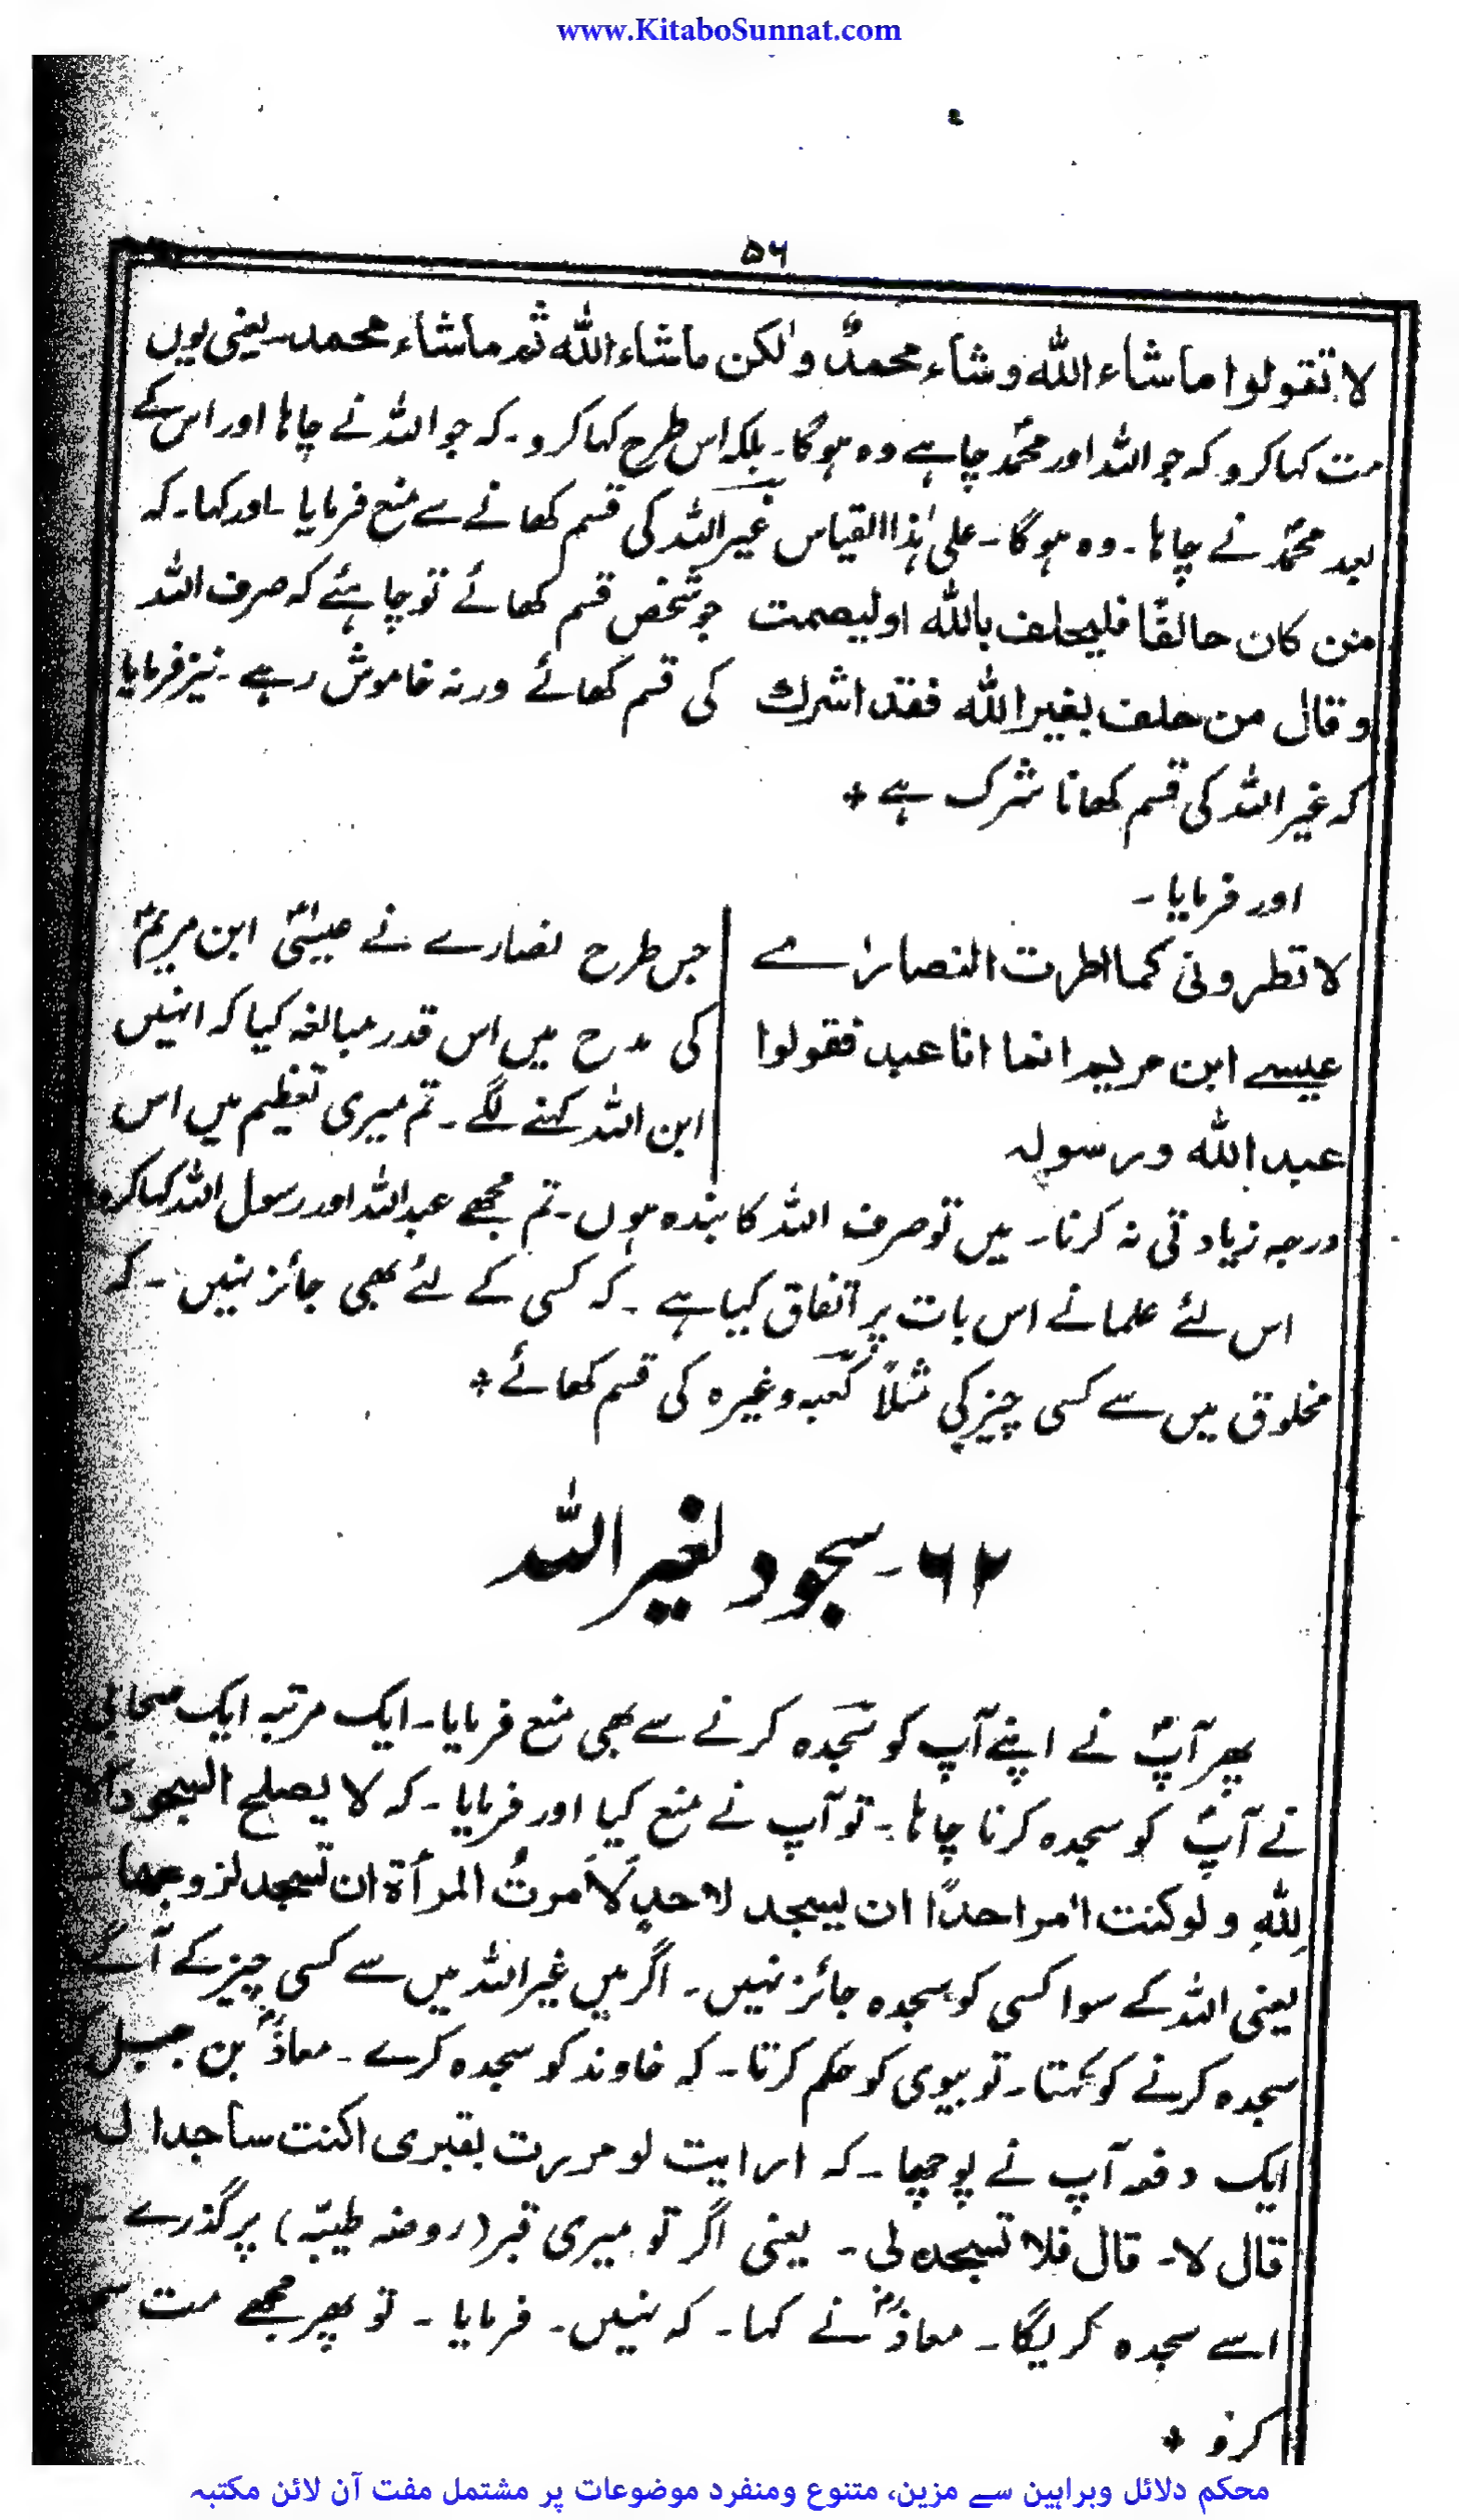 www.KitaboSunnat.com
۵۶
لا تقولوا ماشاء اللہ وشاء محمدٌ ولٰکن ماشاء اللہ ثم ماشاء محمد۔ یعنی یوں
مت کہا کرو کہ جو اللہ اور محمدؐ چاہے وہ ہوگا۔ بلکہ اس طرح کہا کرو۔ کہ جو اللہ نے چاہا اور اس کے
بعد محمدؐ نے چاہا۔ وہ ہوگا۔ علیٰ ہٰذا القیاس غیر اللہ کی قسم کھانے سے منع فرمایا۔ اور کہا۔ کہ
من کان حالفًا فلیحلف باللہ اولیصمت جو شخص قسم کھائے تو چاہئے کہ صرف اللہ
وقال من حلف بغیر اللہ فقد اشرك کی قسم کھائے ورنہ خاموش رہے۔ نیز فرمایا
کہ غیر اللہ کی قسم کھانا شرک ہے +
اور فرمایا۔
لا تطرونی کما اطرت النصارٰے جس طرح نصارے نے عیسیٰؑ ابن مریمؑ
عیسے ابن مریم انما انا عبد فقولوا کی مدح میں اس قدر مبالغہ کیا کہ انہیں
عبد اللہ ورسولہ ابن اللہ کہنے لگے۔ تم میری تعظیم میں اس
درجہ زیادتی نہ کرنا۔ میں تو صرف اللہ کا بندہ ہوں۔ تم مجھے عبد اللہ اور رسول اللہ کہا کرو
اس لئے علما نے اس بات پر اتفاق کیا ہے۔ کہ کسی کے لئے بھی جائز نہیں۔ کہ
مخلوق میں سے کسی چیز کی مثلاً کعبہ وغیرہ کی قسم کھائے +
۶۲۔ سجود لغیر اللہ
پھر آپؐ نے اپنے آپ کو سجدہ کرنے سے بھی منع فرمایا۔ ایک مرتبہ ایک صحابی
نے آپؐ کو سجدہ کرنا چاہا۔ تو آپ نے منع کیا اور فرمایا۔ کہ لا یصلح السجود
لِلّٰہِ ولو کنت اٰمرا احدًا ان یسجد لاحدٍ لَاَمرتُ المرأة ان تسجد لزوجھا
یعنی اللہ کے سوا کسی کو سجدہ جائز نہیں۔ اگر میں غیر اللہ میں سے کسی چیز کے آگے
سجدہ کرنے کو کہتا۔ تو بیوی کو حکم کرتا۔ کہ خاوند کو سجدہ کرے۔ معاذؓ بن جبل
ایک دفعہ آپ نے پوچھا۔ کہ ارایت لو مررت بقبری اکنت ساجدا ل
قال لا۔ قال فلا تسجد لی۔ یعنی اگر تو میری قبر (روضہ طیبّہ) پر گذرے۔
اسے سجدہ کریگا۔ معاذؓ نے کہا۔ کہ نہیں۔ فرمایا۔ تو پھر مجھے مت
کرو +
محکم دلائل وبراہین سے مزین، متنوع ومنفرد موضوعات پر مشتمل مفت آن لائن مکتبہ